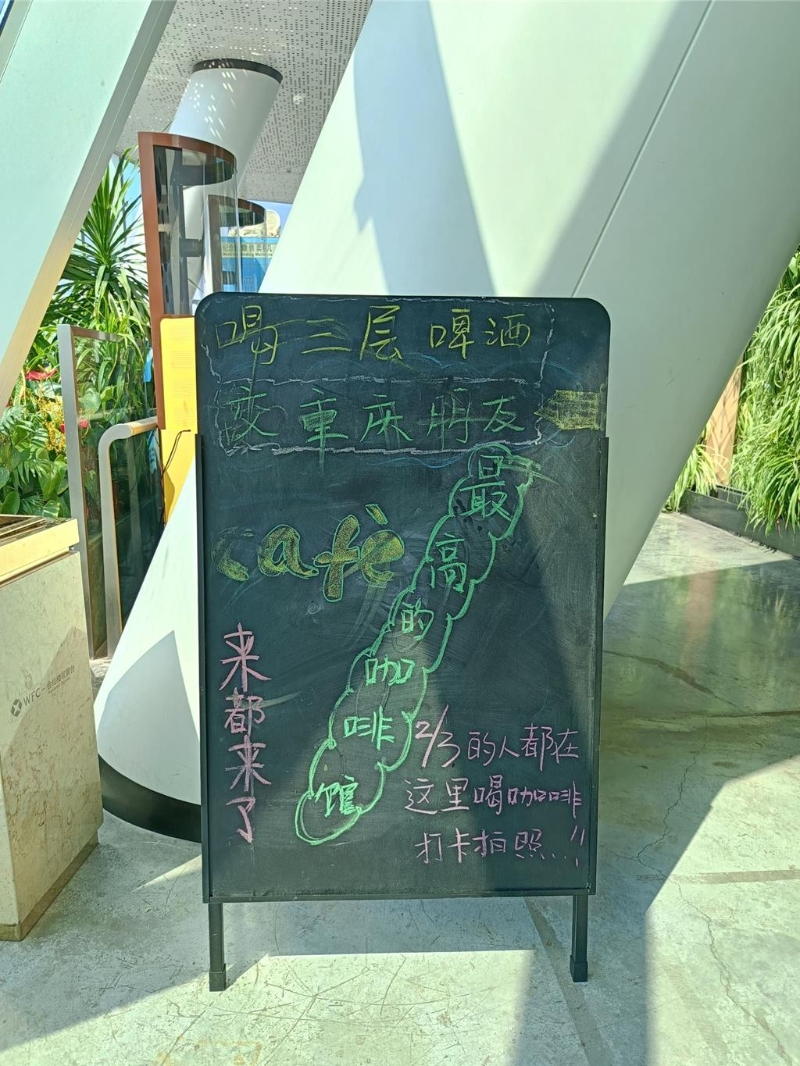 喝三层啤酒
交重庆朋友
café
最高的咖啡馆
来都来了
2/3的人都在
这里喝咖啡
打卡拍照..!!
WFC